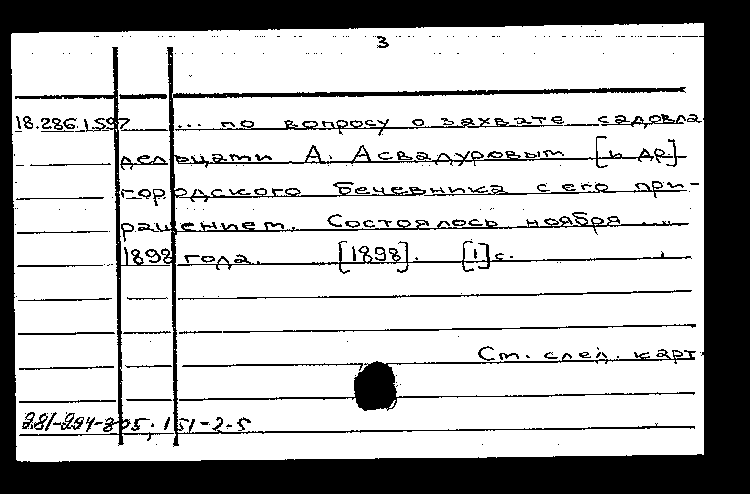 3
18.286.1.597 ... по вопросу о захвате садовла
дельцами А. Асвадуровым [и др.]
городского бечевника с его при-
ращением. Состоялось ноября ....
1898 года. [1898]. [1] с.
Ст. след. карт.
281-294-305; 151-2-5